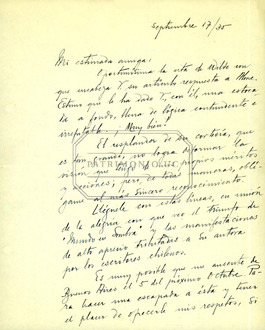 Septiembre 17/35
Mi estimada amiga:
Oportunísima la cita de Wilde con
que encabeza Y. su artículo respuesta a Alone.
Estimo que le ha dado Y., con él, una estoca-
da a fondo, llena de lógica contundente e
irrefutable. ¡Muy bien!
El resplandor de su cortesía, que
es por no logra deformar la
visión que tengo de mis propios méritos
y acciones; pero de todas maneras, obli-
game al más sincero reconocimiento.
Lléguele con estas líneas, un
de la alegría con que veo el triunfo de
"Mundo en Sombra" y las manifestaciones
de alto aprecio tributadas a su autora
por los escritores chilenos.
Es muy posible que me ausente de
Buenos Aires el 5 del próximo Octubre. Pa-
ra hacer una escapada a ésta y tener
el placer de ofrecerle mis respetos. Si
PATRIMONIO UC